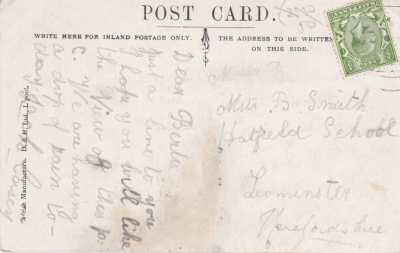 POST CARD.
WRITE HERE FOR INLAND POSTAGE ONLY.
THE ADDRESS TO BE WRITTEN
ON THIS SIDE.
Dear Berta
Just a line to you
I hope you will like
the View of this pi-
c. We are having
a drop of rain to-
day
Miss B. Smith
Hatfield School
Leominster
Herefordshire
British Manufacture.